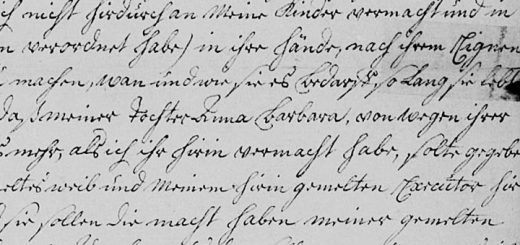 ich nicht hirdurch an Meine Kinder vermacht und in
n verordnet habe) in ihre hände, nach ihrem Eignen
machen, wan und wie sie es bedarf, so lang sie lebt
daß meiner Tochter Anna Barbara, von wegen ihrer
s mehr, als ich ihr hirin vermacht habe, solte gegebe
eltes weib und Meinem hirin gemelten Executor hir
d sie sollen die macht haben meiner gemelten